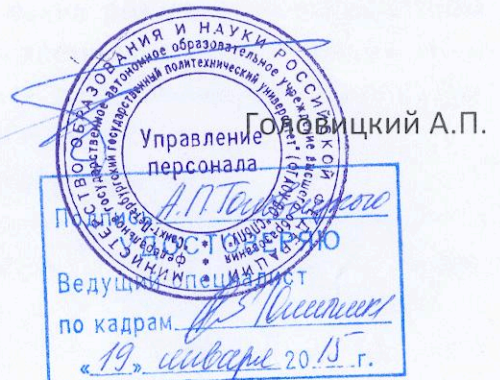 Головицкий А.П.
МИНИСТЕРСТВО ОБРАЗОВАНИЯ И НАУКИ РОССИЙСКОЙ ФЕДЕРАЦИИ
Федеральное государственное автономное образовательное учреждение высшего образования
Санкт-Петербургский государственный политехнический университет"
Управление
персонала
Подпись А.П. Головицкого
УДОСТОВЕРЯЮ
Ведущий специалист
по кадрам
«19» января 2015 г.